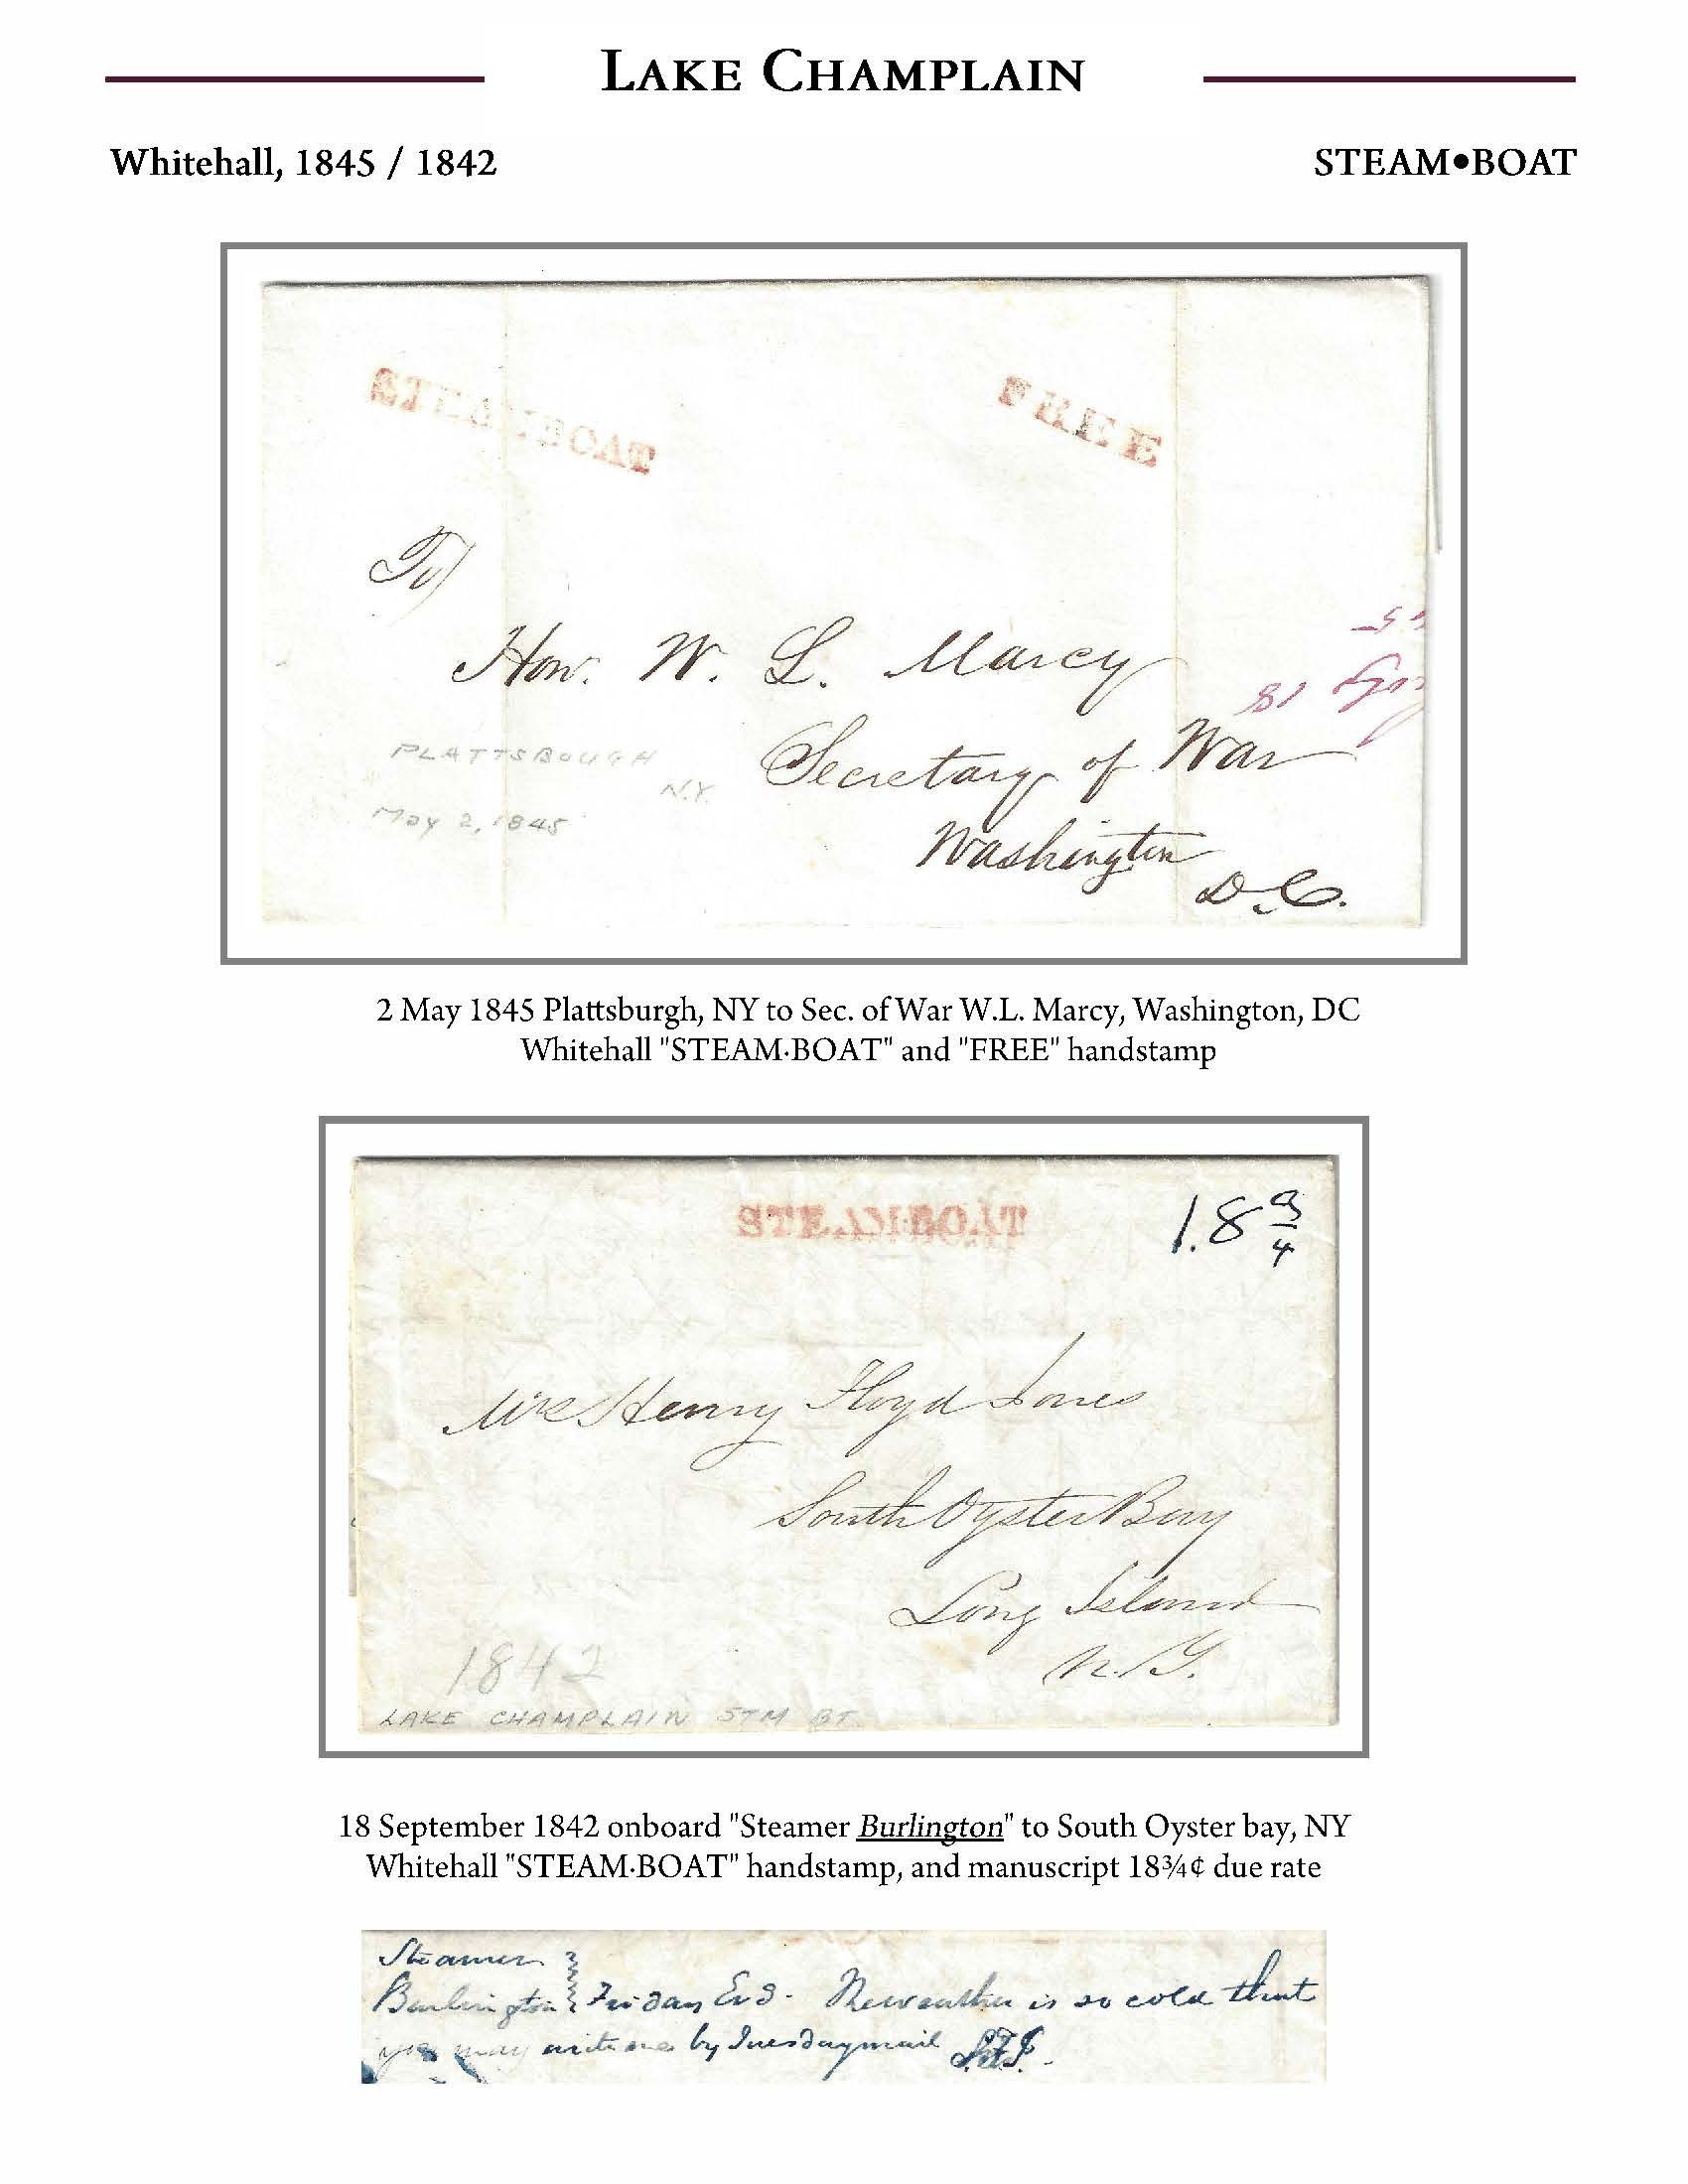 LAKE CHAMPLAIN
Whitehall, 1845 / 1842
STEAM•BOAT
STEAMBOAT
FREE
To
Hon. W. L. Marcy
Secretary of War
Washington
D.C.
PLATTSBOUGH
N.Y.
May 2, 1845
2 May 1845 Plattsburgh, NY to Sec. of War W.L. Marcy, Washington, DC
Whitehall "STEAM·BOAT" and "FREE" handstamp
STEAM·BOAT
18 3/4
Mrs Henry Floyd Jones
South Oyster Bay
Long Island
N.Y.
1842
LAKE CHAMPLAIN STM BT
18 September 1842 onboard "Steamer Burlington" to South Oyster bay, NY
Whitehall "STEAM·BOAT" handstamp, and manuscript 18¾¢ due rate
Steamer
Burlington Friday Evg. The weather is so cold that
you may write me by Tuesday mail